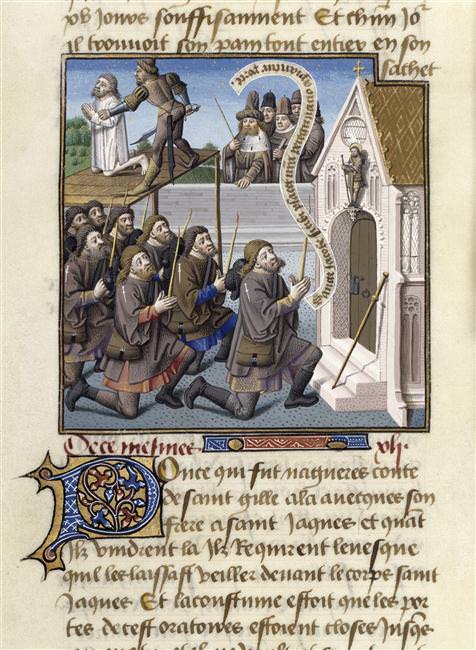 xv Jours souffisanment Et chun Jor
Il trouvoit son pain tout entier en son
sachet
De ce mesmes xli.
Ponce qui fut nagueres conte
de saint gille ala avecques son
frere a saint Jaques et quant
Ilz vindrent la Ilz Requirent levesque
quil les laissast veiller devant le corps saint
Jaques Et la coustume estoit que les por
tes de cest oratoires estoient closes Jusqs